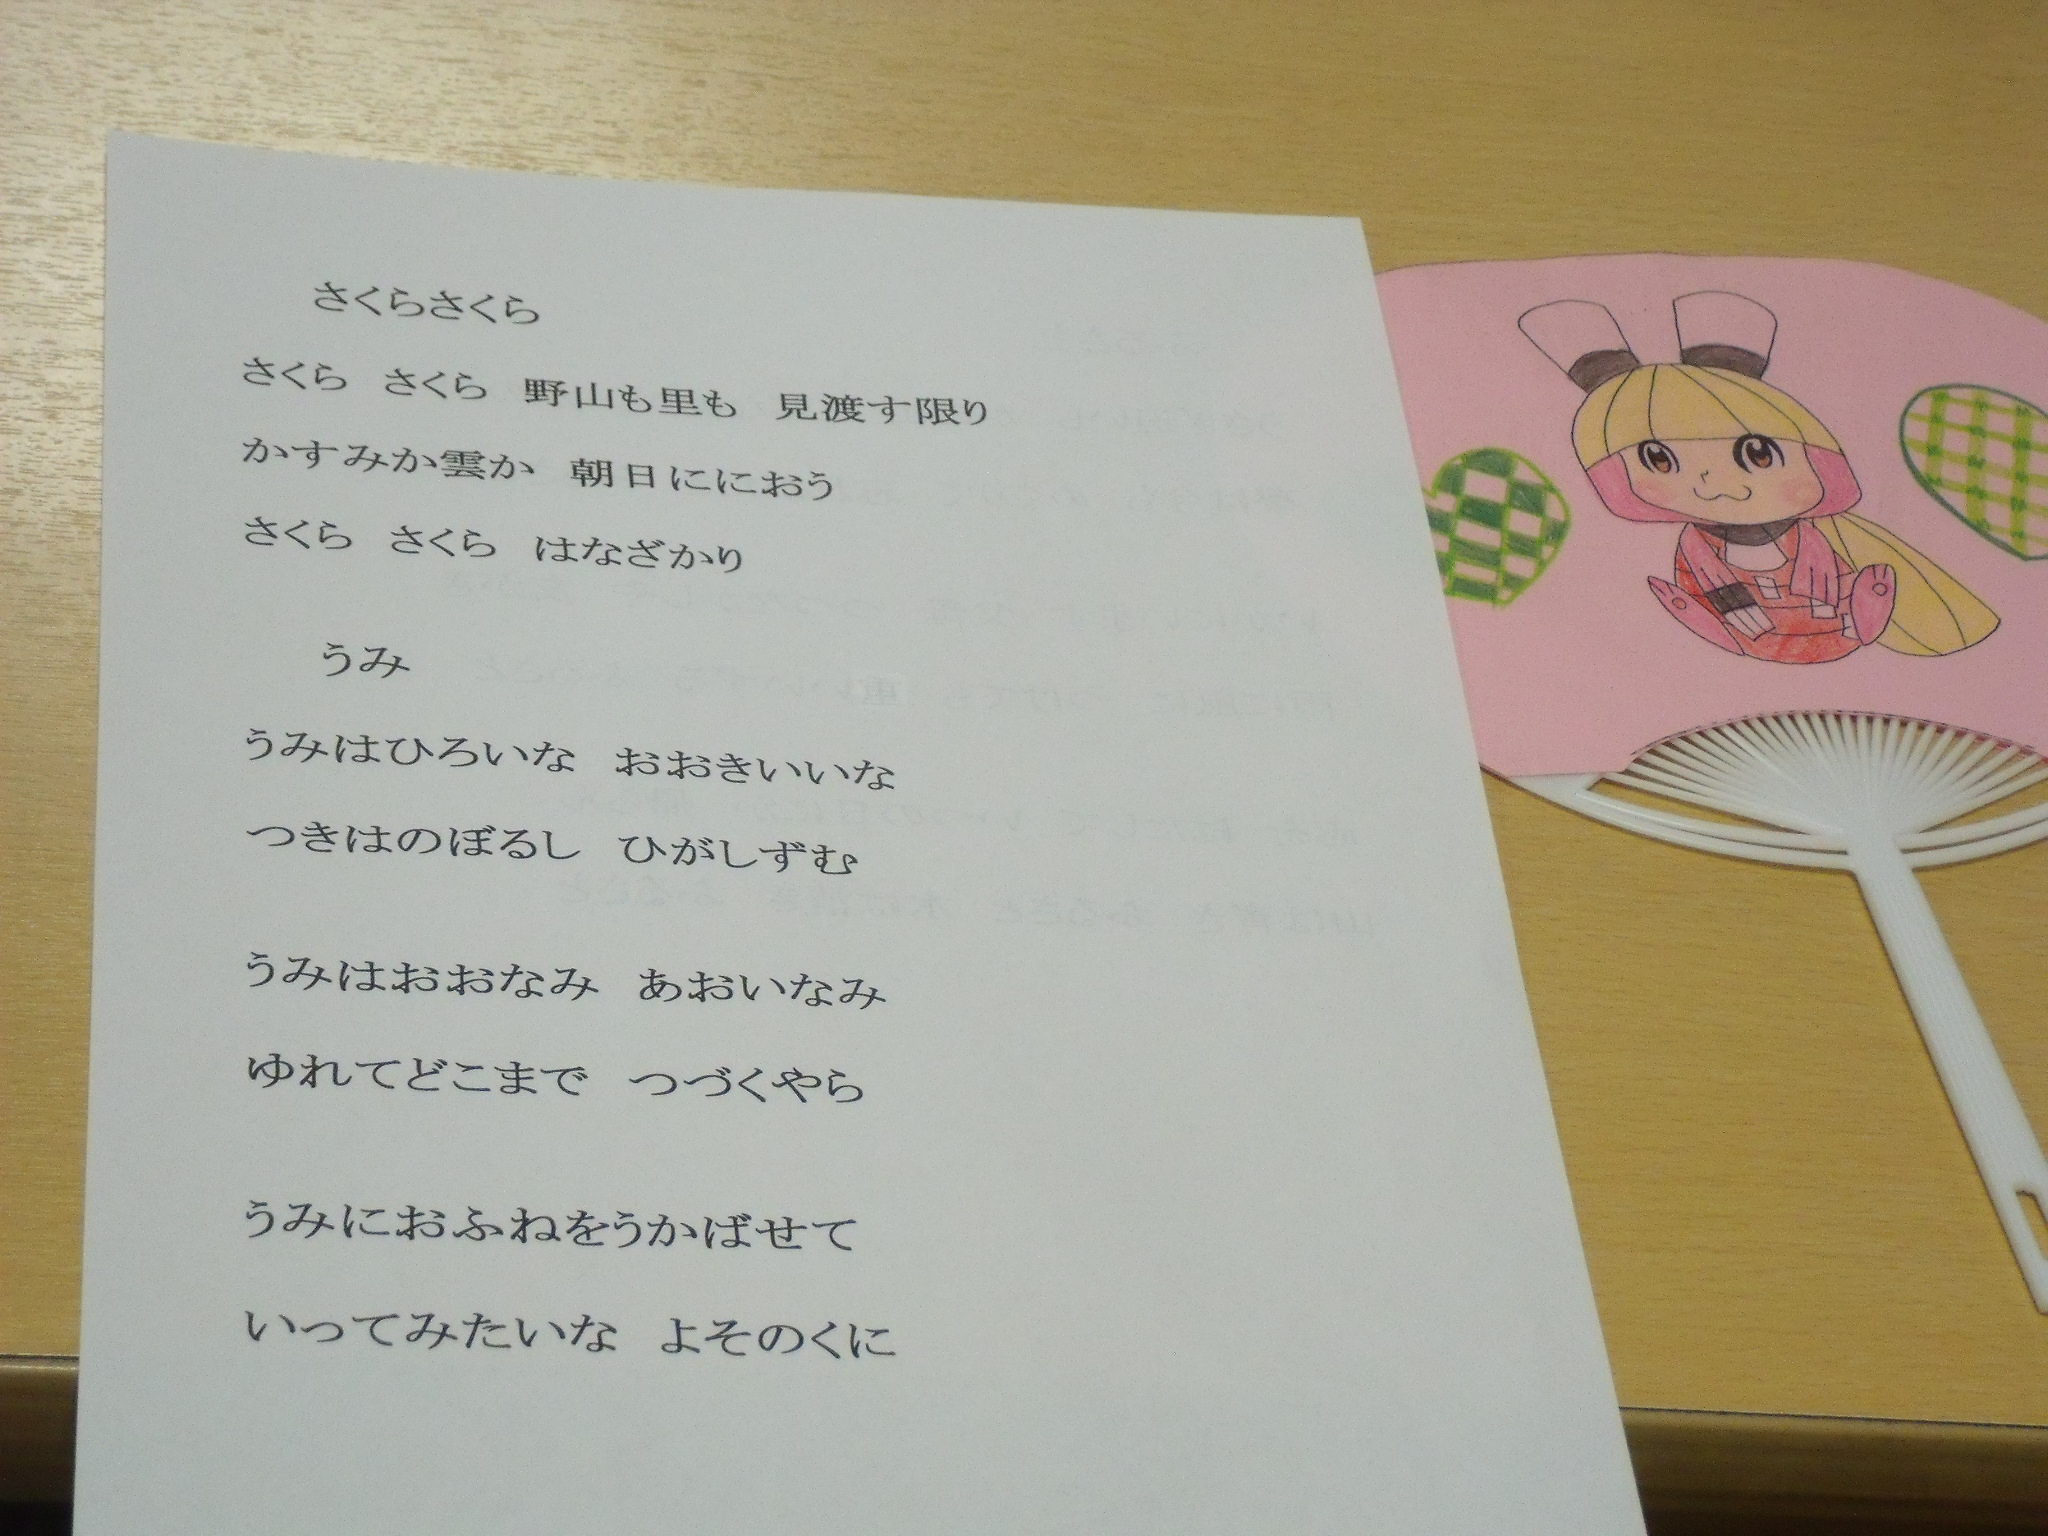 さくらさくら
さくら　さくら　野山も里も　見渡す限り
かすみか雲か　朝日ににおう
さくら　さくら　はなざかり
うみ
うみはひろいな　おおきいいな
つきはのぼるし　ひがしずむ
うみはおおなみ　あおいなみ
ゆれてどこまで　つづくやら
うみにおふねをうかばせて
いってみたいな　よそのくに